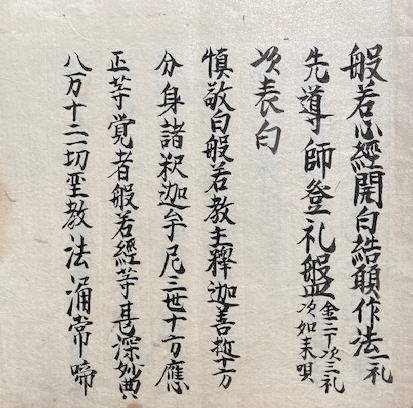 般若心經開白結願作法一礼
先導師登礼盤金二丁次三礼
次如来唄
次表白
慎敬白般若教主釋迦善逝十方
分身諸釈迦牟尼三世十方應
正等覚者般若經等甚深妙典
八万十二切至教法涌常啼